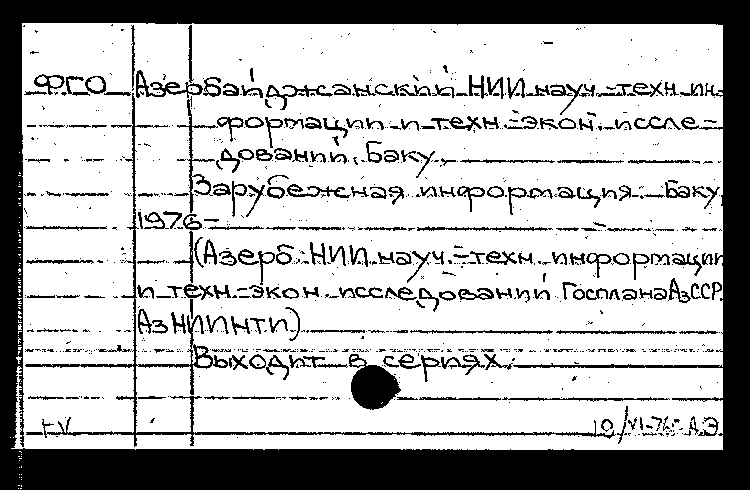 ФГО Азербайджанский НИИ науч.-техн. ин-
формации и техн.-экон. иссле-
дований, Баку.
Зарубежная информация. Баку,
1976-
(Азерб. НИИ науч.-техн. информации
и техн.-экон. исследований Госплана АзССР.
АзНИИНТИ)
Выходит в сериях.
10/VI-76 А.Э.